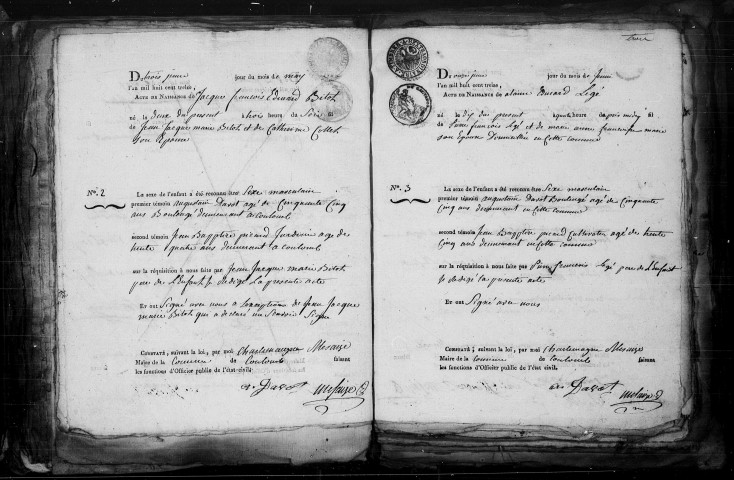 Du trois jeune jour du mois de may
l'an mil huit cent treize,
ACTE DE NAISSANCE de Jacque francois Edouard Bitch
né le deux du present à trois heures du Soir
de Jean Jacque marie Bitch et de Catherine Collet
Son Epouse
N.º 2 Le sexe de l'enfant a été reconnu être Sexe masculain
premier témoin augustain Davot agé de Cinquante Cinq
ans Boulangé demeurant a Coulomb
second témoin Jean Bapptiste picard Jardinier age de
trente quatre ans demeurant a Coulomb
sur la réquisition à nous faite par Jean Jacque marie Bitch
pere de L'Enfant Je redige La presente acte
Et ont Signé avec nous a L'exception de Jean Jacque
marie Bitch qui a declaré ne Savoir Signe
CONSTATÉ, suivant la loi, par moi Charlemagne Mesaize
Maire de la Commune de Coulomb faisant
les fonctions d'Officier public de l'état civil.
Davot mesaize
Du onze jeune jour du mois de Juin
l'an mil huit cent treize,
ACTE DE NAISSANCE de Legé
né le dix du present à quatre heures du
de Pierre francois Legé et de marie anne
son Epouse Domicillié en Cette Commune
N.º 3 Le sexe de l'enfant a été reconnu être Sexe masculain
premier témoin augustain Davot Boulangé agé de Cinquante
Cinq ans demeurant en Cette Commune
second témoin Jean Bapptiste picard Cultivateur agé de trente
Cinq ans demeurant en Cette Commune
sur la réquisition à nous faite par Pierre francois Legé pere de L'Enfant
Je redigé La presente acte
Et ont Signé avec nous
CONSTATÉ, suivant la loi, par moi Charlemagne Mesaize
Maire de la Commune de Coulomb faisant
les fonctions d'Officier public de l'état civil.
Davot mesaize